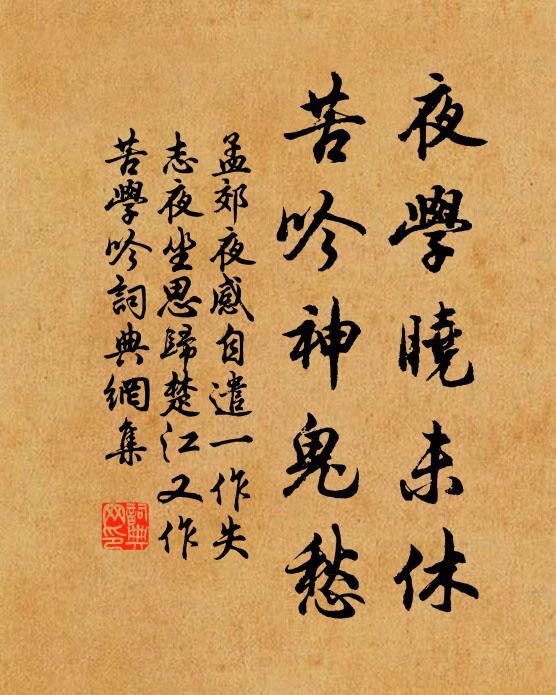 夜學曉未休
苦吟神鬼愁
孟郊夜感自遣一作失
志夜坐思歸楚江又作
苦學吟詞典網集
詞典
网印